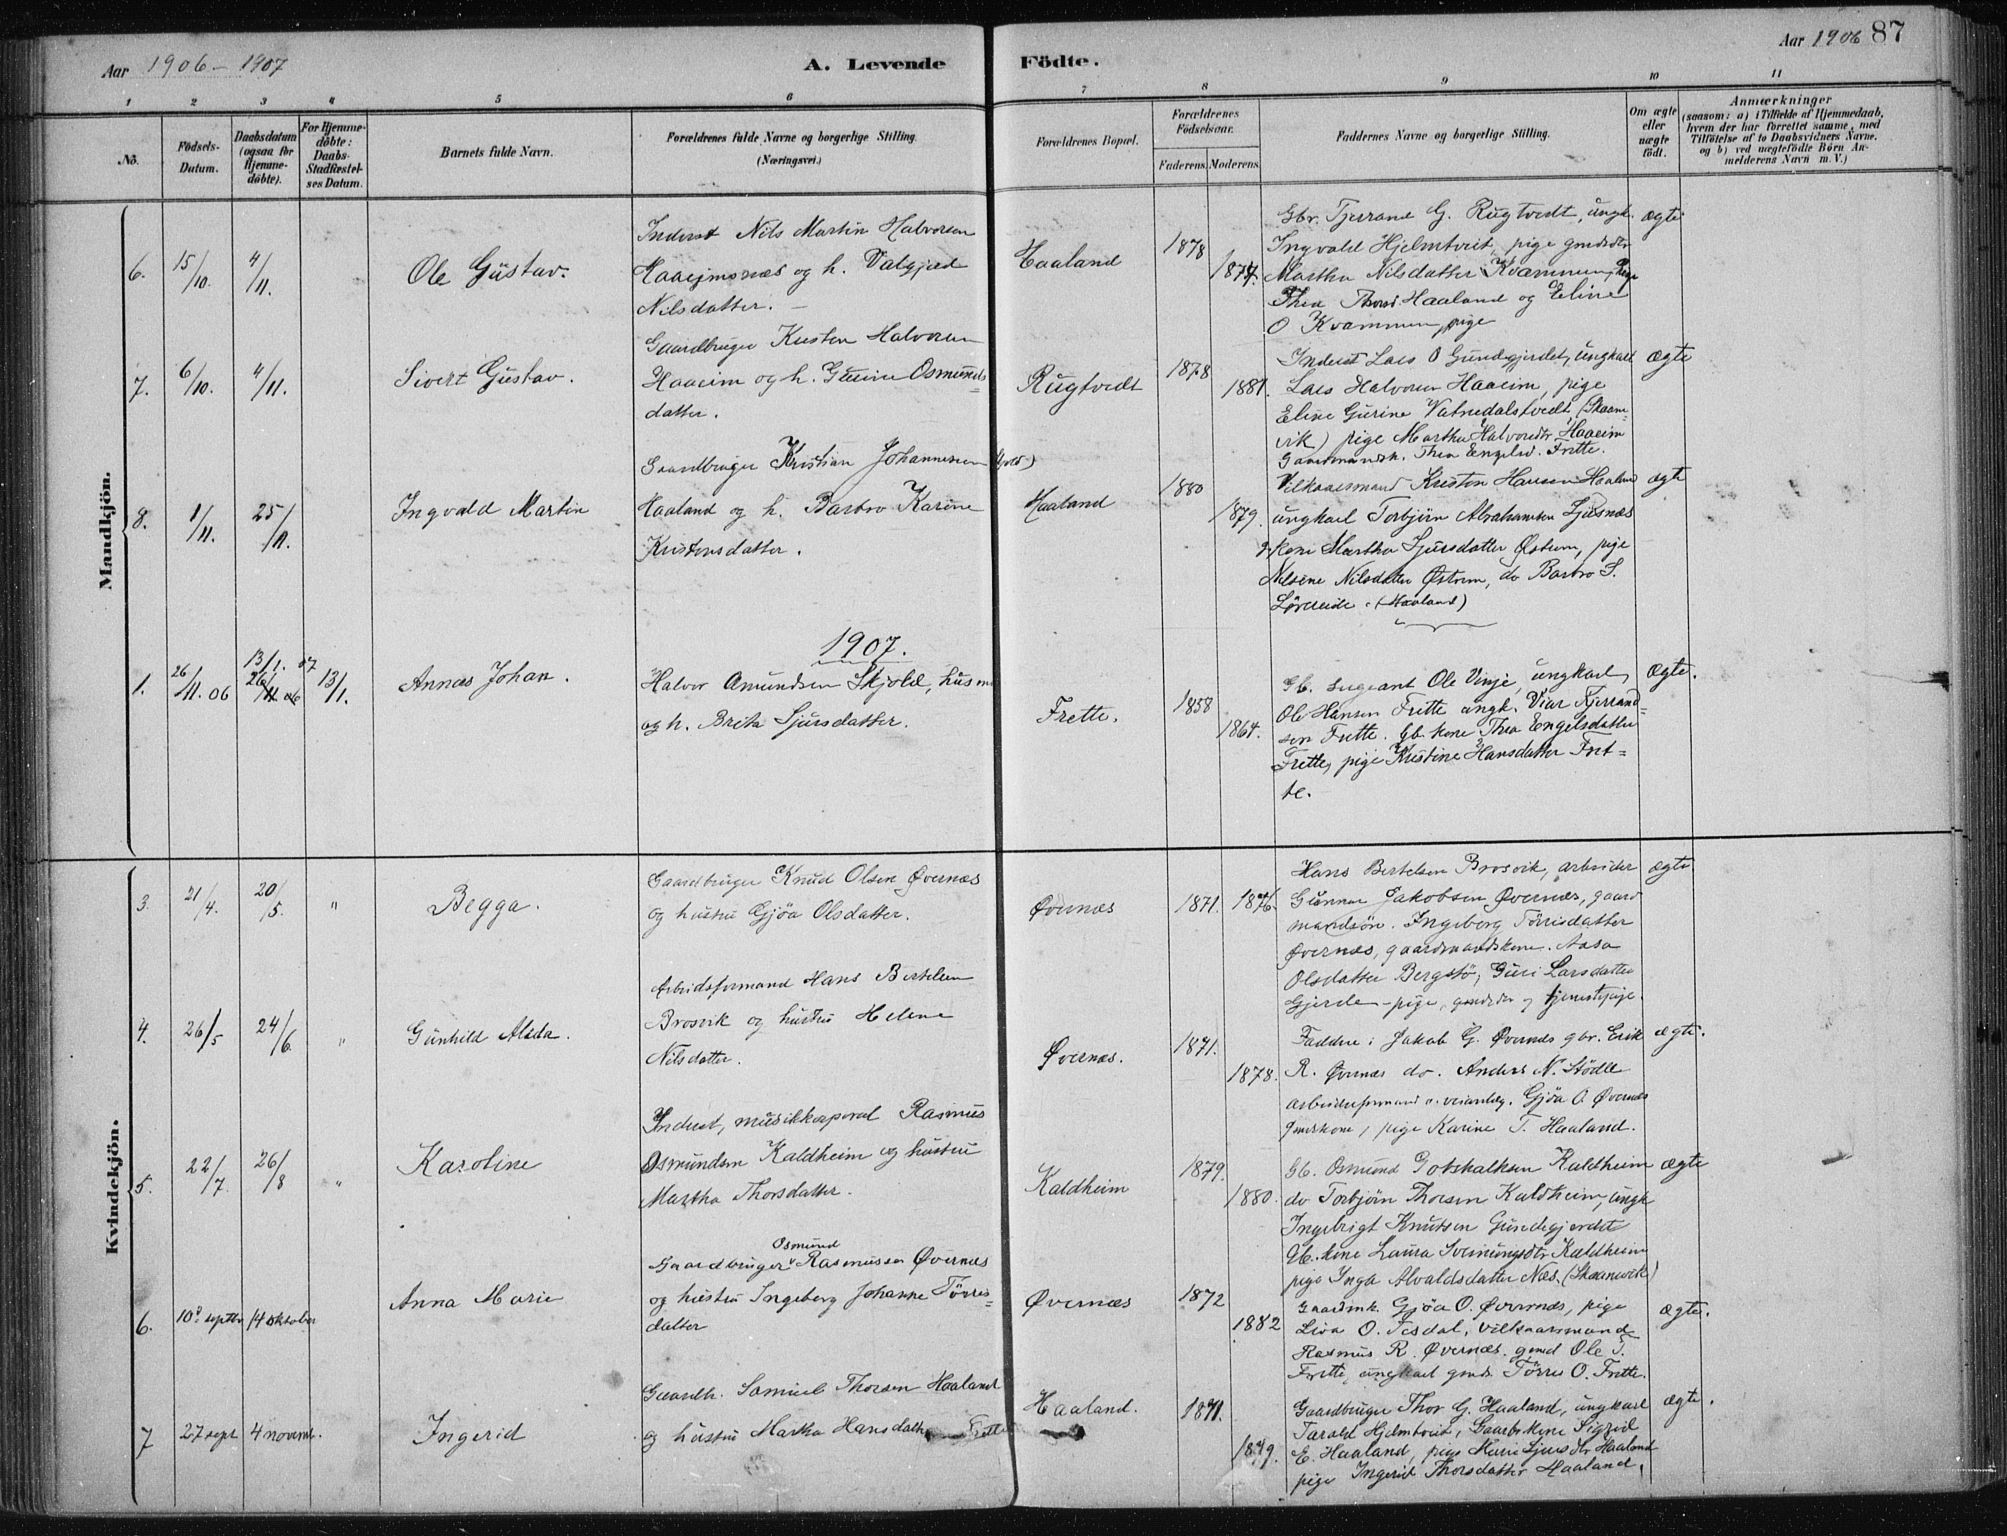 Aar 1906-1907
A. Levende Födte.
Aar 1906 87
1 2 3 4 5 6 7 8 9 10 11
No.
Födsels-Datum.
Daabsdatum (ogsaa for Hjemme-döbte).
For Hjemme-döbte: Daabs-Stadfæstel-ses Datum.
Barnets fulde Navn.
Forældrenes fulde Navne og borgerlige Stilling. (Næringsvei.)
Forældrenes Bopæl.
Forældrenes Födselsaar.
Faderens. Moderens.
Faddernes Navne og borgerlige Stilling.
Om ægte eller uægte födt.
Anmærkninger
(saasom: a) i Tilfælde af Hjemmedaab,
hvem der har forrettet samme, med
Tilföielse af to Daabsvidners Navne.
og b) ved uægtefödte Börn An-
melderens Navn m. V.)
Mandkjön.
6. 15/10. 4/11. Ole Gustav.
Inderst Nils Martin Halvorsen
Haaejmsnæs og h. Valgjæd
Nilsdatter. —
Haaland 1878 1877.
Gbr. Tjerrand G. Rugtvedt, ungk.
Ingvald Hjelmtveit, pige gmdsdtr
Martha Nilsdatter Kvammen, Pige
Thea Thorsd Haaland og Eline
O Kvammen, pige
ægte.
7. 6/10. 4/11. Sivert Gustav.
Gaardbruger Kristen Halvorsen
Haaeim og h. Gurine Osmunds-
datter.
Rugtvedt 1878 1881.
Inderst Lars O Gundegjerdet, ungkarl
Lars Halvorsen Haaeim, pige
Eline Gurine Vatnedalstvedt (Skaane-
vik) pige Martha Halvorsdtr Haaeim
Gaardmandsk. Thea Engelsd. Frette.
ægte
8. 1/11. 25/11. Ingvald Martin
Gaardbruger Kristian Johannesen
Haaland og h. Barbro Karine
Kristensdatter.
Haaland 1880 1879.
Vilkaarsmand Kristen Hansen Haaland
ungkarl Torbjörn Abrahamsen Ljusnæs
kone Martha Sjursdatter Østrem, pige
Nilsine Nilsdatter Østrem, do Barbro S.
Løvereide. (Haaland)
ægte
1907.
1. 26/11. 06 13/1. 07 26/11 06 13/1. Annas Johan.
Halvor Amundsen Skjold, husm
og h. Brita Sjursdatter.
Frette. 1858 1864.
Gb. sergeant Ole Vinje, ungkarl
Ole Hansen Frette ungk. Viar Tjerrand-
sen Frette. Gb. kone Thea Engelsdatter
Frette, pige Kristine Hansdatter Fret-
te.
Ægte.
Kvindekjön.
3. 21/4. 20/5. " Begga.
Gaardbruger Knud Olsen Øvernæs
og hustru Gjöa Olsdatter.
Øvernæs 1871. 1876.
Hans Bertelsen Brosvik, arbeider
Gunnar Jakobsen Øvernæs, gaard
mandsön. Ingeborg Törrisdatter
Øvernæs, gaardmandskone. Aasa
Olsdatter Bergstö, Guri Larsdatter
Gjerde - pige, gmdsdtr og tjenestepige.
ægte
4. 26/5 24/6. " Gunhild Alsda.
Arbeidsformand Hans Bertelsen
Brosvik og hustru Helene
Nilsdatter.
Øvernæs. 1871. 1878.
Faddere: Jakob G. Øvernæs gbr. Erik
R. Øvernæs do. Anders N. Stödle
arbeiderformand v. veianlæg. Gjöa O. Øvernæs
gmdskone, pige Karine T. Haaland.
ægte.
5. 22/7. 26/8 " Karoline
Inderst, musikkorporal Rasmus
Osmundsen Kaldheim og hustru
Martha Thorsdatter.
Kaldheim 1879. 1880.
Gb. Osmund Gotskalksen Kaldheim
do Torbjörn Thorsen Kaldheim, ungk
Ingebrigt Knutsen Gundegjerdet
Gb. kone Laura Sveinungsdtr Kaldheim
pige Inga Alvaldsdatter Næs. (Skaanevik)
ægte
6. 10. septbr 14 oktober Anna Marie
Gaardbruger Osmund Rasmussen Øvernæs
og hustru Ingeborg Johanne Törris-
datter
Øvernæs 1872 1882
Gaardmk. Gjöa O. Øvernæs, pige
Liva O. Tesdal, vilkaarsmand
Rasmus R. Øvernæs. gmd Ole T.
Frette, ungkarl gmds. Törris O. Frette.
ægte.
7 27 sept 4 novemb. Ingerid
Gaardb. Samuel Thorsen Haaland
og hustru Martha Hansdatter Frette
Haaland. 1871. 1879.
Gaardbruger Thor G. Haaland, ungkarl
Tarald Hjelmtveit, Gaardbr.kone Sigrid
E. Haaland, pige Marie Sjursdtr Haaland
pige Ingerid Thorsdatter Haaland.
ægte.